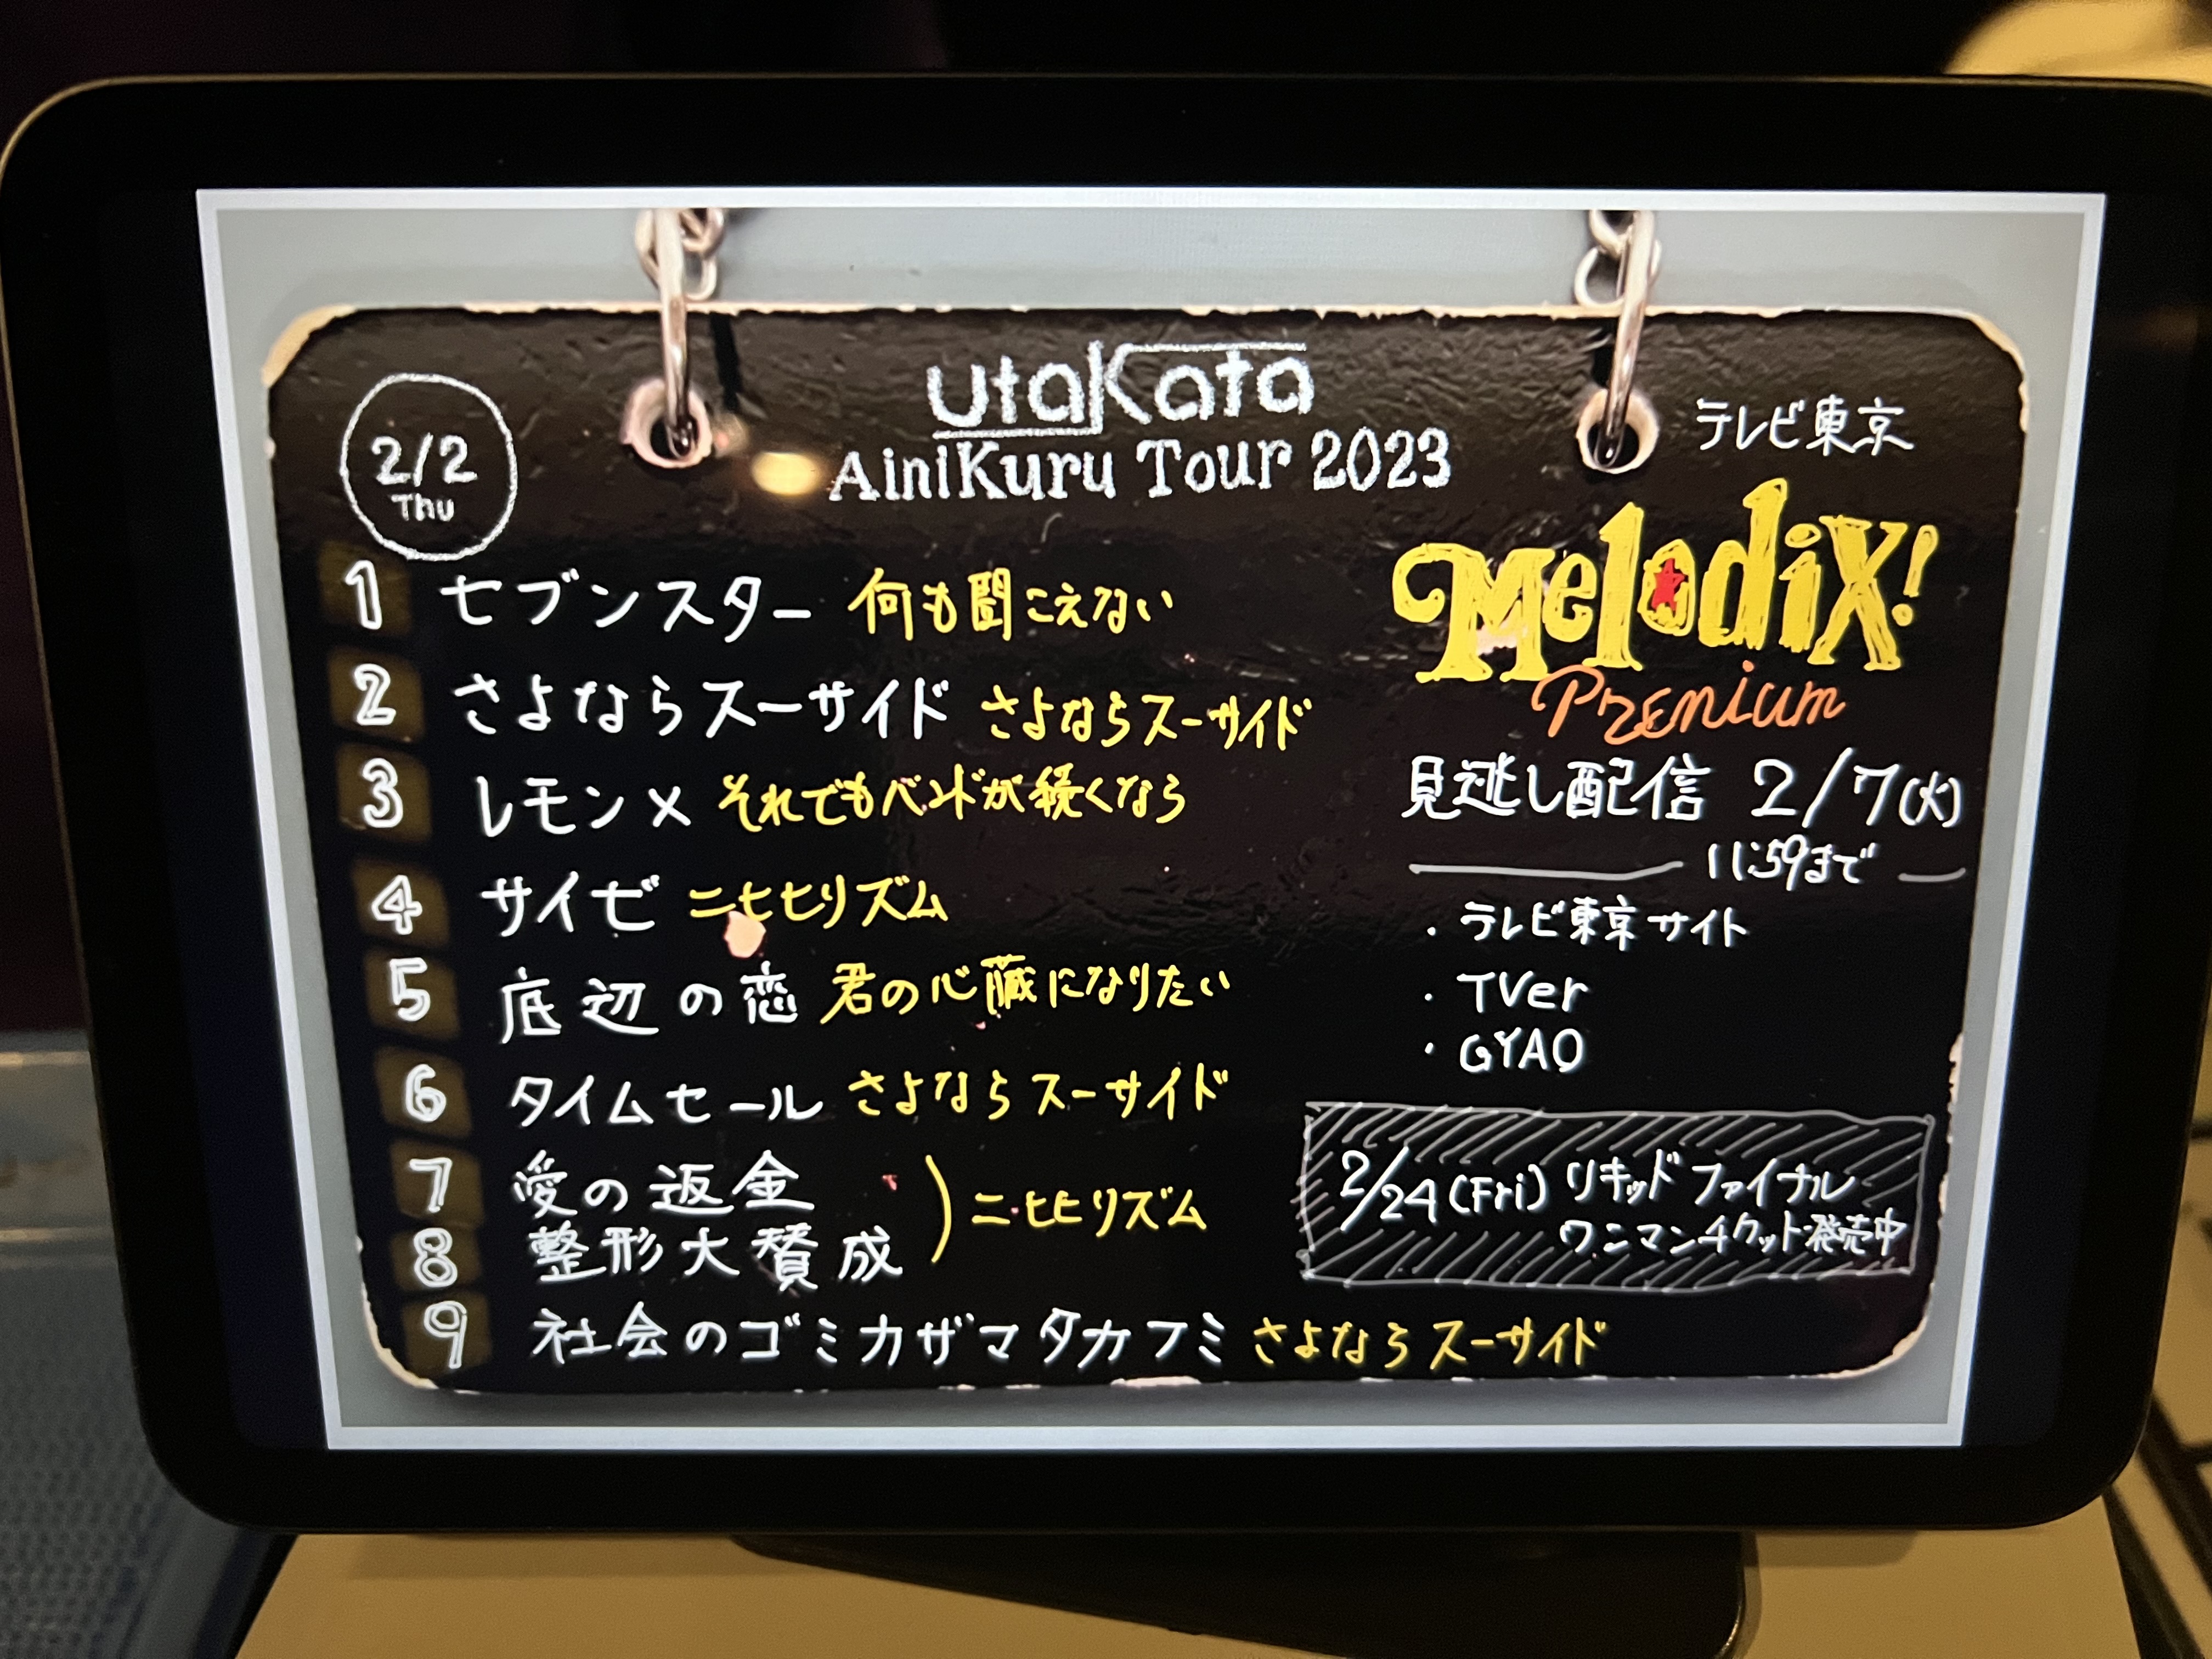 utaKata
AiniKuru Tour 2023
2/2
Thu
1 セブンスター 何も聞こえない
2 さよならスーサイド さよならスーサイド
3 レモン× それでもバンドが続くなら
4 サイゼ ニヒヒリズム
5 底辺の恋 君の心臓になりたい
6 タイムセール さよならスーサイド
7 愛の返金
8 整形大賛成
ニヒヒリズム
9 社会のゴミカザマタカフミ さよならスーサイド
テレビ東京
MelodiX!
Premium
見逃し配信 2/7(火)
11:59まで
・テレビ東京サイト
・TVer
・GYAO
2/24(Fri) リキッドファイナル
ワンマンチケット発売中